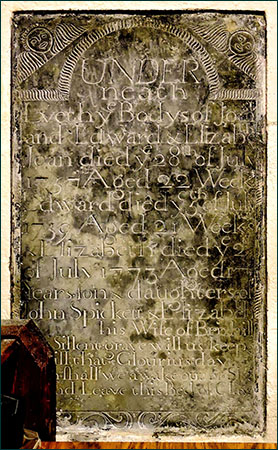 UNDER
neath
Lye the Bodys of Joan
and Edward & Elizabe
Joan died ye 28 of July
Aged 22 Week
Edward died ye of July
1739 Aged 21 Weeks
& Elizabeth died ye
of July 1773 Aged
Years son & daughters of
John Spickett & Elizabe
his Wife of
Silent grave will us keep
till that Glorious day
shall we awake our
and Leave this bed of Cl